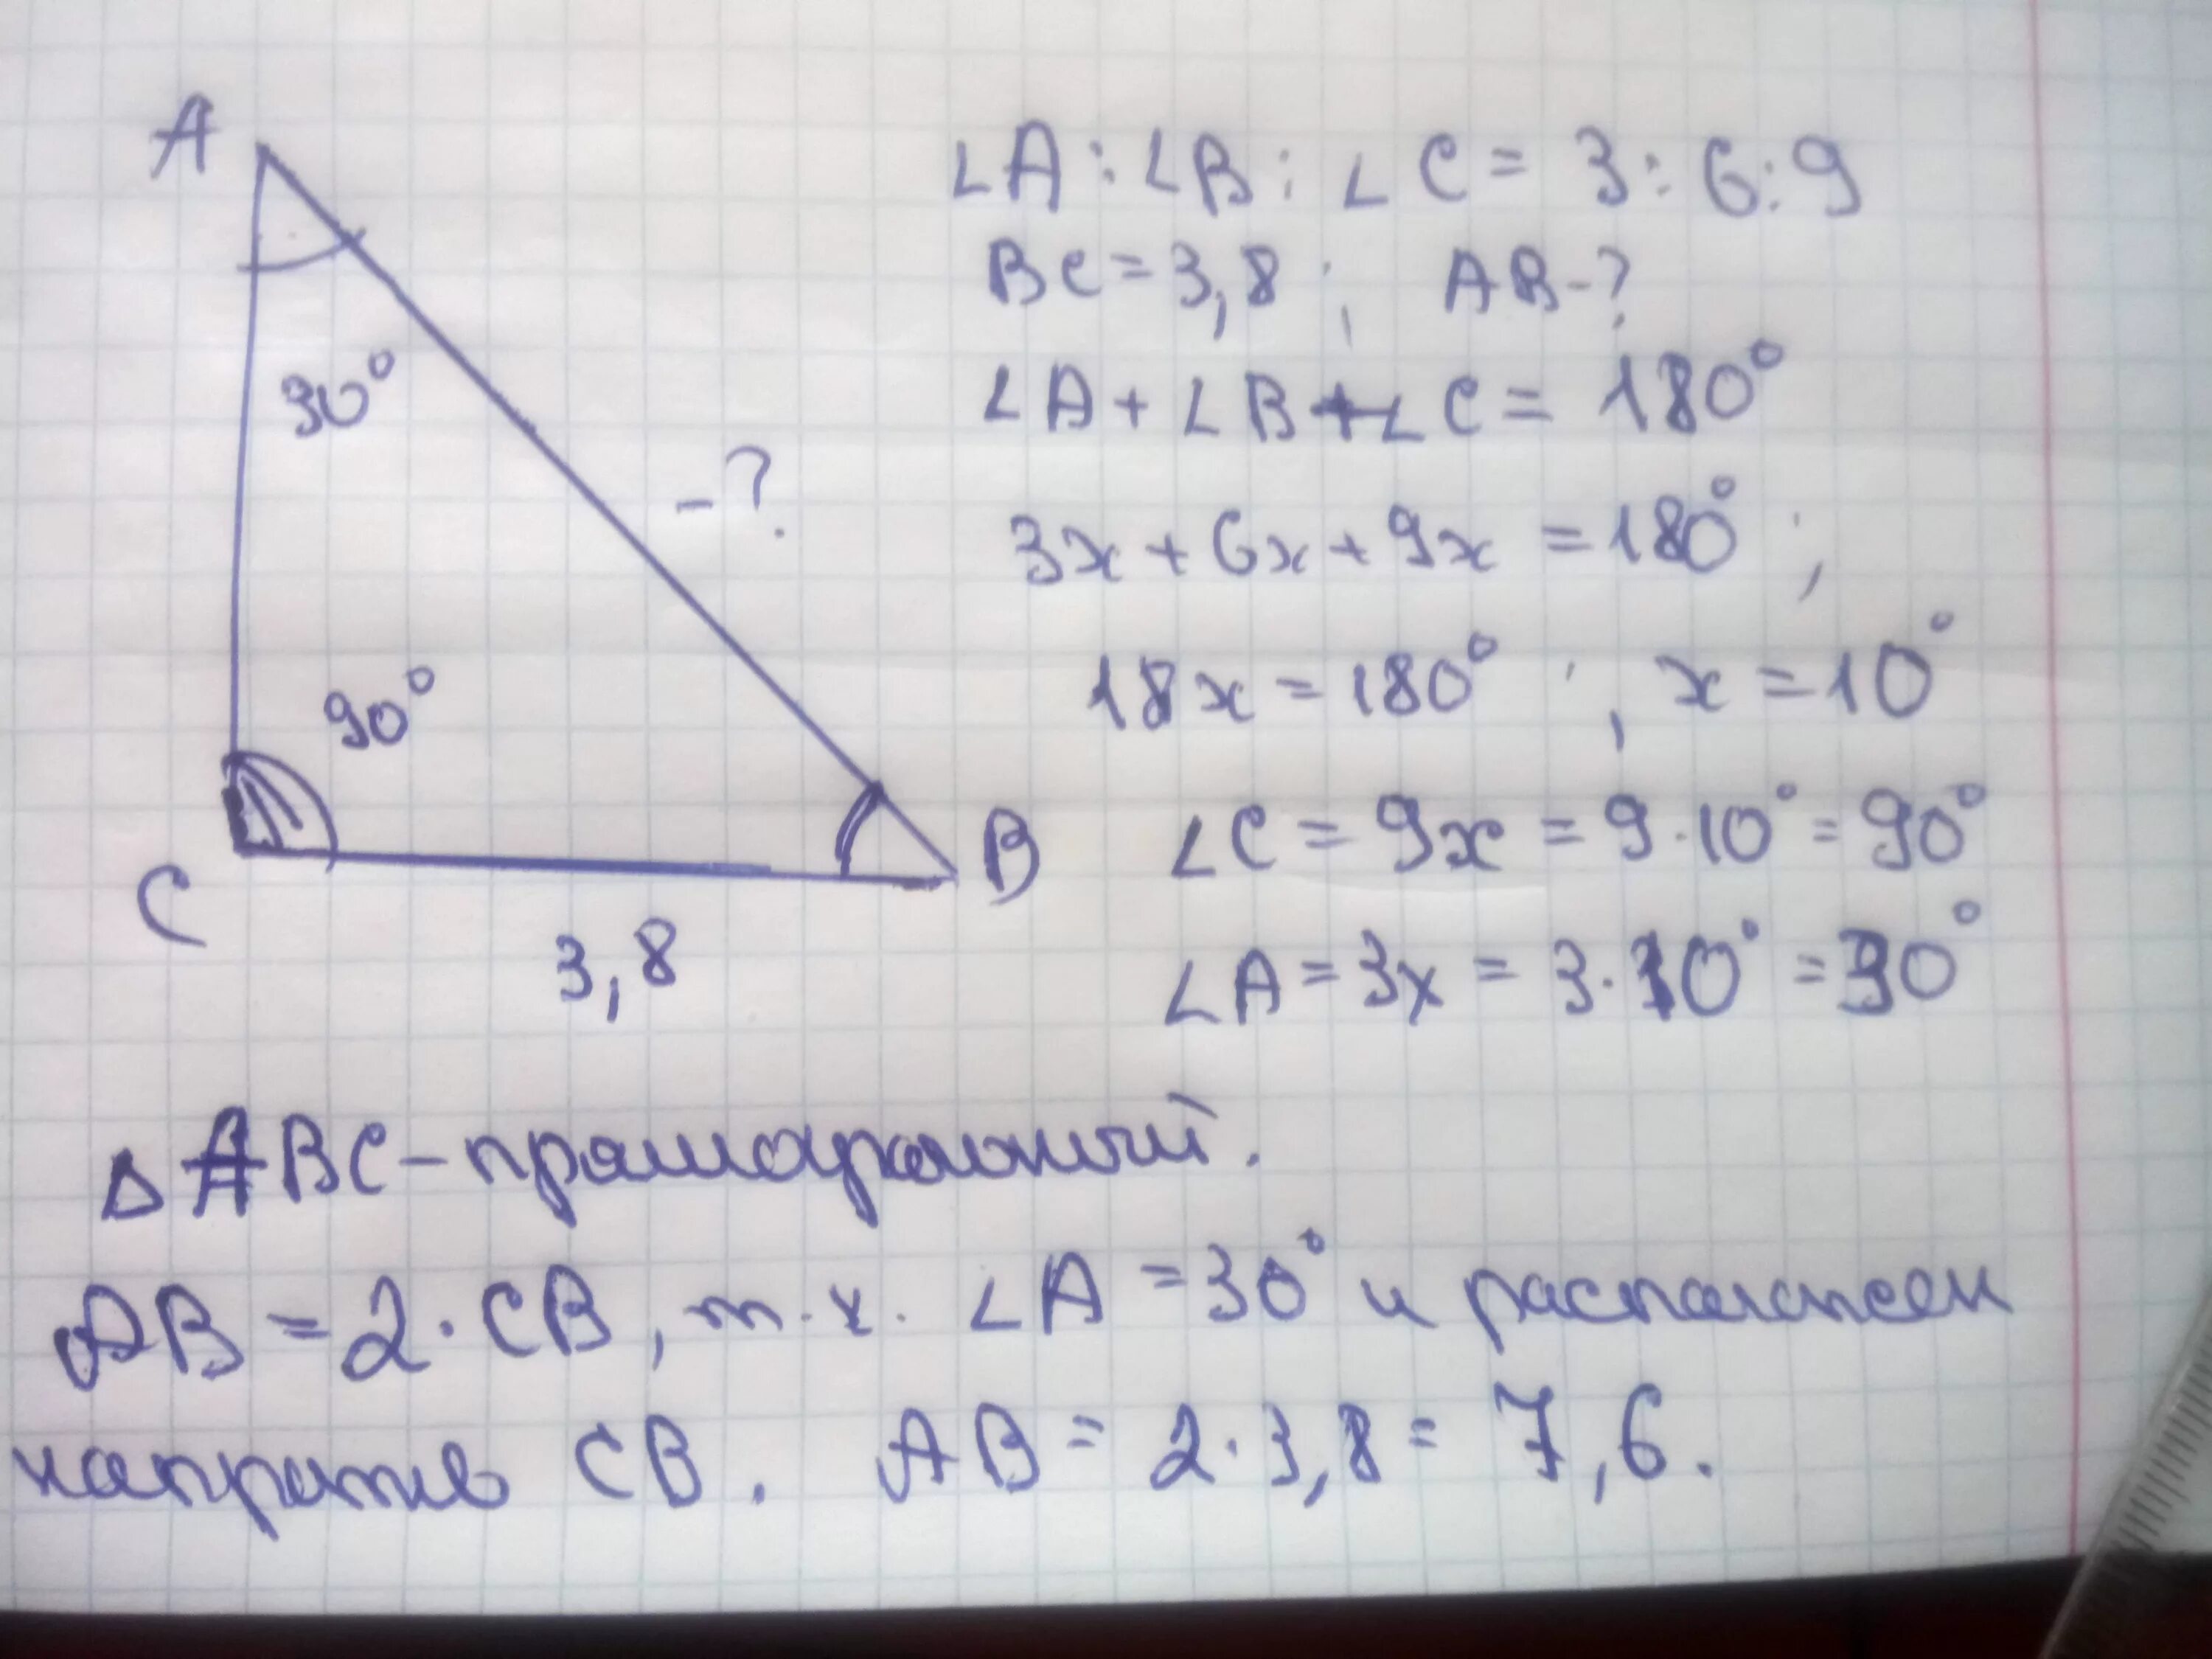 A
∠A : ∠B : ∠C = 3 : 6 : 9
BC = 3,8 ; AB - ?
30°
∠A + ∠B + ∠C = 180°
- ?
3x + 6x + 9x = 180° ;
18x = 180° ; x = 10°
90°
∠C = 9x = 9 · 10° = 90°
B
C
3,8
∠A = 3x = 3 · 10° = 30°
△ ABC - прямоугольный.
AB = 2 · CB, т.к. ∠A = 30° и расположен
напротив CB. AB = 2 · 3,8 = 7,6.